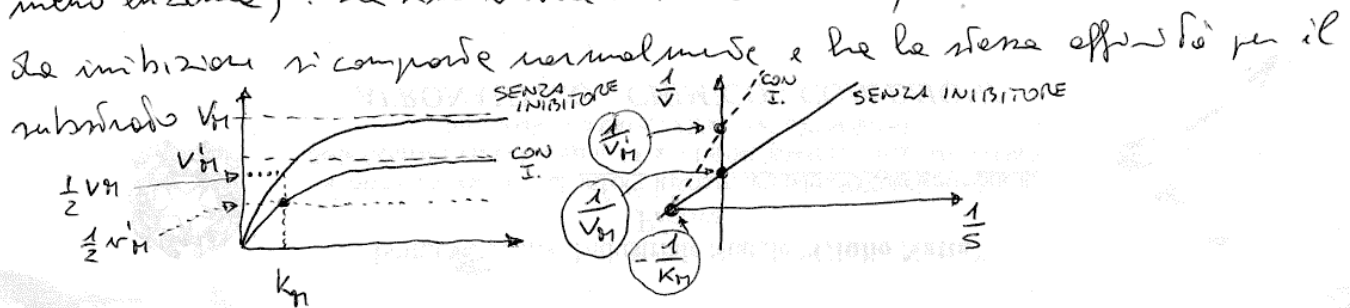 La inibizione si comporta normalmente e ha la stessa affinità per il
substrato
V_M
SENZA INIBITORE
V'_M
CON I.
1/2 V_M
1/2 V'_M
K_M
1/V
CON I.
SENZA INIBITORE
1/V'_M
1/V_M
-1/K_M
1/S